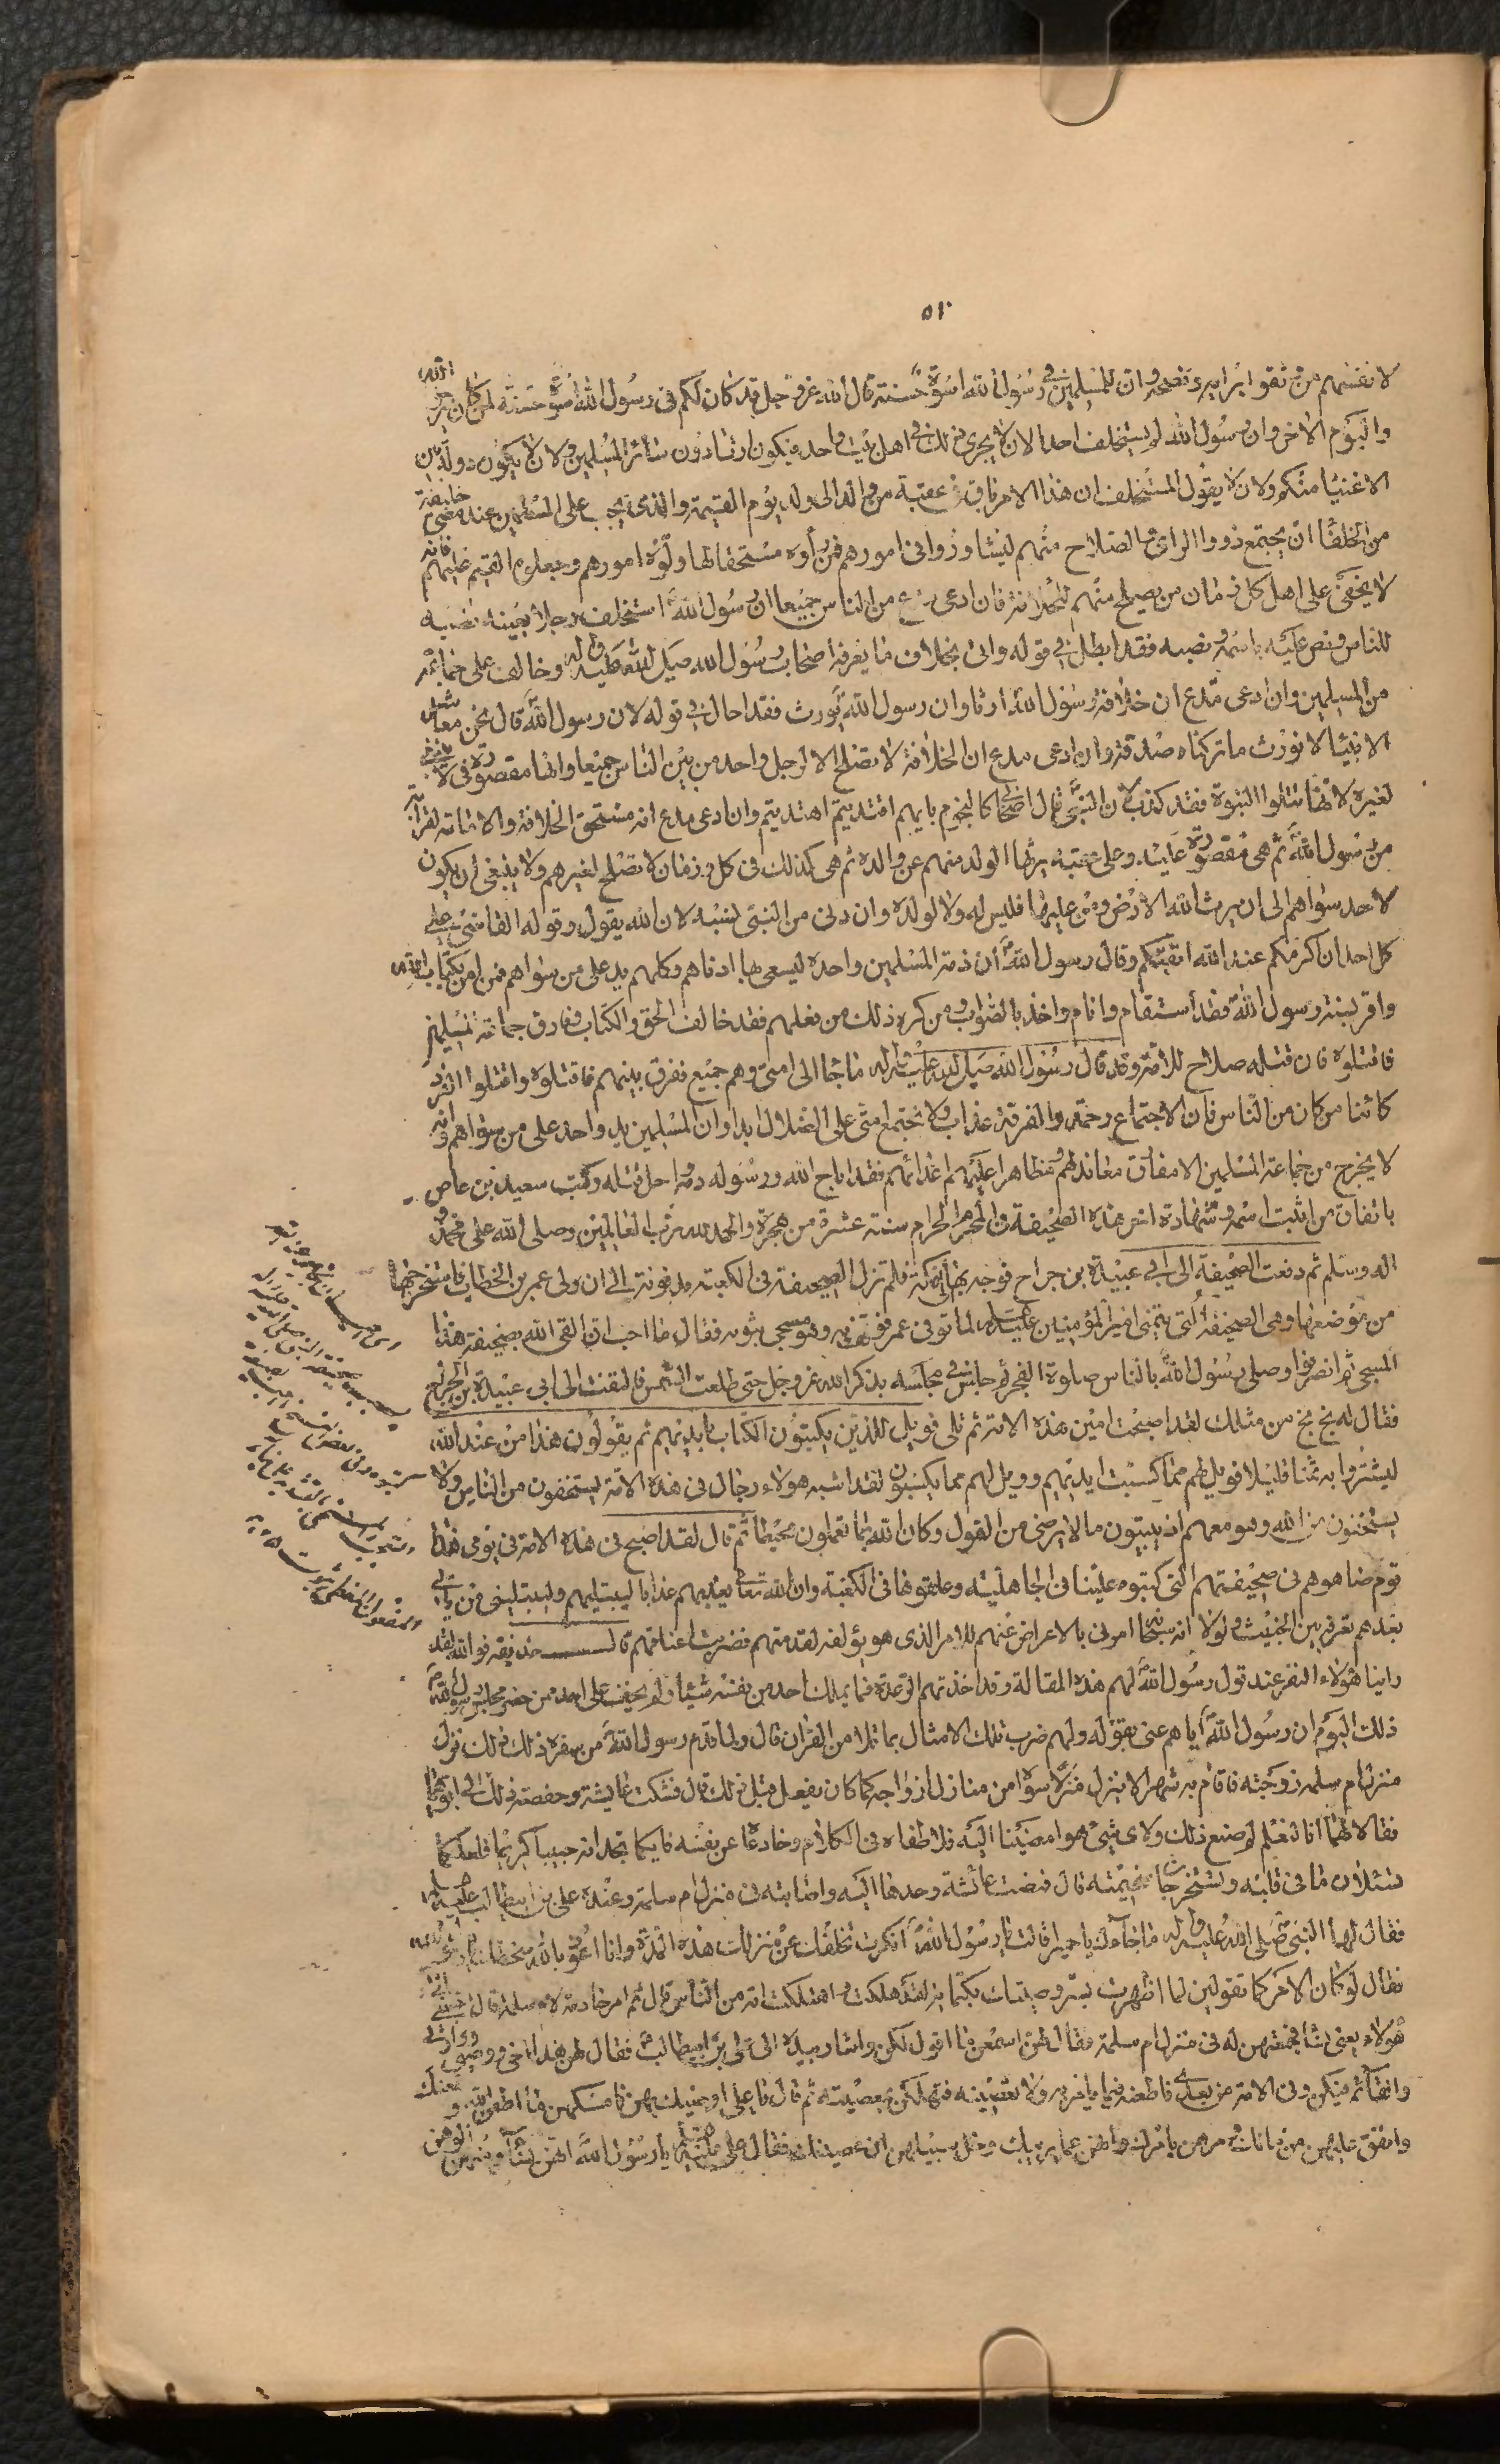 ٥١٠
لانفسهم من ثقوا برايه ونصحه وان للمسلمين في رسول الله اسوة حسنة قال الله عز وجل قد كان لكم فى رسول الله اسوة حسنة لمن كان يرجو الله
واليوم الاخر وان رسول الله لم يستخلف احدا لان لا يجرى ذلك في اهل بيت واحد فيكون ارثا دون سائر المسلمين ولان لا يكون دولة بين
الاغنيا منكم ولان لا يقول المستخلف ان هذا الامر باق في عقبه من والد الى ولد يوم القيمة والذى يجب على المسلمين عند مضى خليفة
من الخلفا ان يجتمع ذووا الراى والصلاح منهم ليتشاوروا فى امورهم فمن راوه مستحقا لها ولوه امورهم وجعلوه القيم عليهم فانه
لا يخفى على اهل كل زمان من يصلح منهم للخلافة فان ادعى مدع من الناس جميعا ان رسول الله استخلف رجلا بعينه نصبه
للناس ونص عليه باسمه ونسبه فقد ابطل في قوله واتى بخلاف ما يعرفه اصحاب رسول الله صلى الله عليه واله وخالف على جماعة
من المسلمين وان ادعى مدع ان خلافة رسول الله ارثا وان رسول الله يورث فقد احال في قوله لان رسول الله قال نحن معاشر
الانبيا لا نورث ما تركناه صدقة وان ادعى مدع ان الخلافة لا تصلح الا لرجل واحد من بين الناس جميعا وانها مقصورة فيه لا تنبغى
لغيره لانها تتلوا النبوة فقد كذب لان النبى قال اصحابى كالنجوم بايهم اقتديتم اهتديتم وان ادعى مدع انه مستحق الخلافة والامامة لقرابته
من رسول الله ثم هى مقصورة عليه وعلى عقبه يرثها الولد منهم عن والده ثم هى كذلك فى كل زمان لا تصلح لغيرهم ولا ينبغى ان يكون
لاحد سواهم الى ان يرث الله الارض ومن عليها فليس له ولا لولده وان دنى من النبى نسبه لان الله يقول وقوله القاضى على
كل احد ان اكرمكم عند الله اتقيكم وقال رسول الله ان ذمة المسلمين واحدة ليسعى بها ادناهم وكلهم يد على من سواهم فمن امن بكتاب الله
واقر بسنة رسول الله فقد استقام واناب واخذ بالصواب ومن كره ذلك من فعلهم فقد خالف الحق والكتاب وفارق جماعة المسلمين
فاقتلوه فان قتله صلاح للامة وقد قال رسول الله صلى الله عليه واله من جاء الى امتى وهم جميع ففرق بينهم فاقتلوه واقتلوا الفرد
كائنا من كان من الناس فان الاجتماع رحمة والفرقة عذاب ولا تجتمع امتى على الضلال ابدا وان المسلمين يد واحد على من سواهم فانه
لا يخرج من جماعة المسلمين الا مفارق معاند لهم ومظاهر عليهم اعدائهم فقد اباح الله ورسوله دمه واحل قتله وكتب سعيد بن عاص
باتفاق من اثبت اسمه وشهادته اخر هذه الصحيفة فى المحرم الحرام سنة عشرة من هجرة والحمد لله رب العالمين وصلى الله على محمد
واله وسلم ثم دفعت الصحيفة الى ابى عبيدة بن جراح فوجه بها الى مكة فلم تزل الصحيفة فى الكعبة مدفونة الى ان ولى عمر بن الخطاب فاستخرجها
من موضعها وهى الصحيفة التى تمنى امير المؤمنين عليه السلم لما توفى عمر فوقف به وهو مسجى بثوبه فقال ما احب ان القى الله بصحيفة هذا
المسجى ثم انصرفوا وصلى رسول الله بالناس صلوة الفجر ثم جلس في مجلسه يذكر الله عز وجل حتى طلعت الشمس فالتفت الى ابى عبيدة بن الجراح
فقال له بخ بخ من مثلك لقد اصبحت امين هذه الامة ثم تلى فويل للذين يكتبون الكتاب بايديهم ثم يقولون هذا من عند الله
ليشتروا به ثمنا قليلا فويل لهم مما كسبت ايديهم وويل لهم مما يكسبون لقد اشبه هولاء رجال فى هذه الامة يستخفون من الناس ولا
يستخفون من الله وهو معهم اذ يبيتون ما لا يرضى من القول وكان الله بما تعملون محيطا ثم قال لقد اصبح فى هذه الامة فى يومى هذا
قوم ضاهوهم فى صحيفتهم التى كتبوه علينا فى الجاهلية وعلقوها فى الكعبة وان الله تعالى يعذبهم عذابا ليبتليهم وليبتلى من ياتى
بعدهم تفرقة بين الخبيث ولولا انه سبحانه امرنى بالاعراض عنهم للامر الذى هو يؤلفه لقدمتهم فضربت اعناقهم قال حذيفة فوالله لقد
راينا هولاء النفر عند قول رسول الله لهم هذه المقالة وقد اخذتهم الرعدة فما يملك احد من نفسه شيئا ولم يخف على احد ممن حضر مجلس رسول الله
ذلك اليوم ان رسول الله اياهم عنى بقوله ولهم ضرب تلك الامثال بما تلا من القران قال ولما قدم رسول الله من سفره ذلك نزل
منزل ام سلمه زوجته فاقام به شهرا لا ينزل منزلا سواه من منازل ازواجه كما كان يفعل قبل ذلك قال فشكت عايشة وحفصة ذلك الى ابويهما
فقالا لهما انا لنعلم لم صنع ذلك ولاى شىء هو امضيئا اليه فلاطفاه فى الكلام وخادعاه عن نفسه فانكما تجدانه حييا كريما فلعلكما
تسئلان ما فى قلبه وتستخرجان سخيمته قال فمضت عائشة وحدها اليه واصابته فى منزل ام سلمة وعنده على بن ابيطالب عليه السلم
فقال لها النبى صلى الله عليه واله ما جاء بك يا حميرا قالت يا رسول الله انكرت تخلفك عن منزلك هذه المدة وانا اعوذ بالله من سخطك يا رسول الله
فقال لو كان الامر كما تقولين لما اظهرت بسر وصيتك بكتمانه لقد هلكت واهلكت امة من الناس قال ثم امر خادمة لام سلمة قال اجمعى
هولاء يعنى نسائه فجمعتهن له فى منزل ام سلمة فقال لهن اسمعن ما اقول لكن واشار بيده الى على بن ابيطالب فقال لهن هذا اخى ووصيى ووارثى
والقائم فيكن وفى الامة من بعدى فاطعنه فيما يامركن به ولا تعصينه فتهلكن بمعصيته ثم قال يا على اوصيك بهن فامسكهن ما اطعن الله واطعنك
وانفق عليهن من مالك ومرهن بامرك وانههن عما يريبك وخل سبيلهن ان عصينك فقال على عليه السلم يا رسول الله انهن نساء وفيهن الوهن